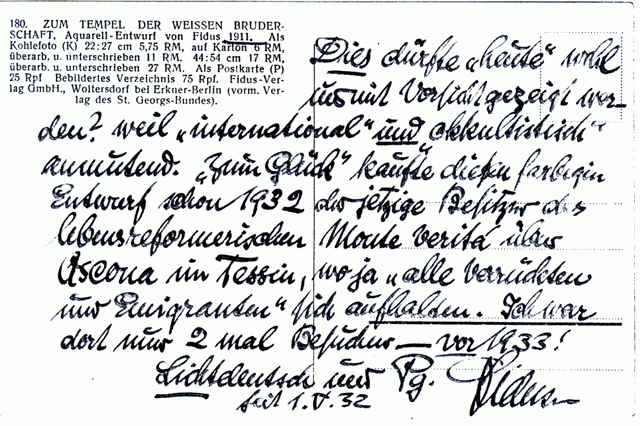 180. ZUM TEMPEL DER WEISSEN BRUDER-
SCHAFT, Aquarell-Entwurf von Fidus 1911. Als
Kohlefoto (K) 22:27 cm 5,75 RM, auf Karton 6 RM,
überarb. u. unterschrieben 11 RM. 44:54 cm 17 RM,
überarb. u. unterschrieben 27 RM. Als Postkarte (P)
25 Rpf Bebildertes Verzeichnis 75 Rpf. Fidus-Ver-
lag GmbH., Woltersdorf bei Erkner-Berlin (vorm. Ver-
lag des St. Georgs-Bundes).
Dies dürfte „heute“ wohl
nur mit Vorsicht gezeigt wer-
den? weil „international“ und „okkultistisch“
anmutend. „Zum Glück“ kaufte diesen farbigen
Entwurf schon 1932 der jetzige Besitzer des
lebensreformerischen Monte Verità über
Ascona im Tessin, wo ja „alle Verrückten
und Emigranten“ sich aufhalten. Ich war
dort nur 2 mal Besucher — vor 1933!
Lichtdeutsch und Pg. Fidus.
seit 1.V.32